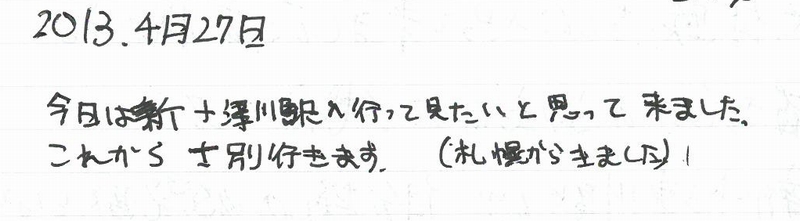 2013.4月27日
今日は新十津川駅へ行って見たいと思って来ました。
これから士別行きます。(札幌からきました)